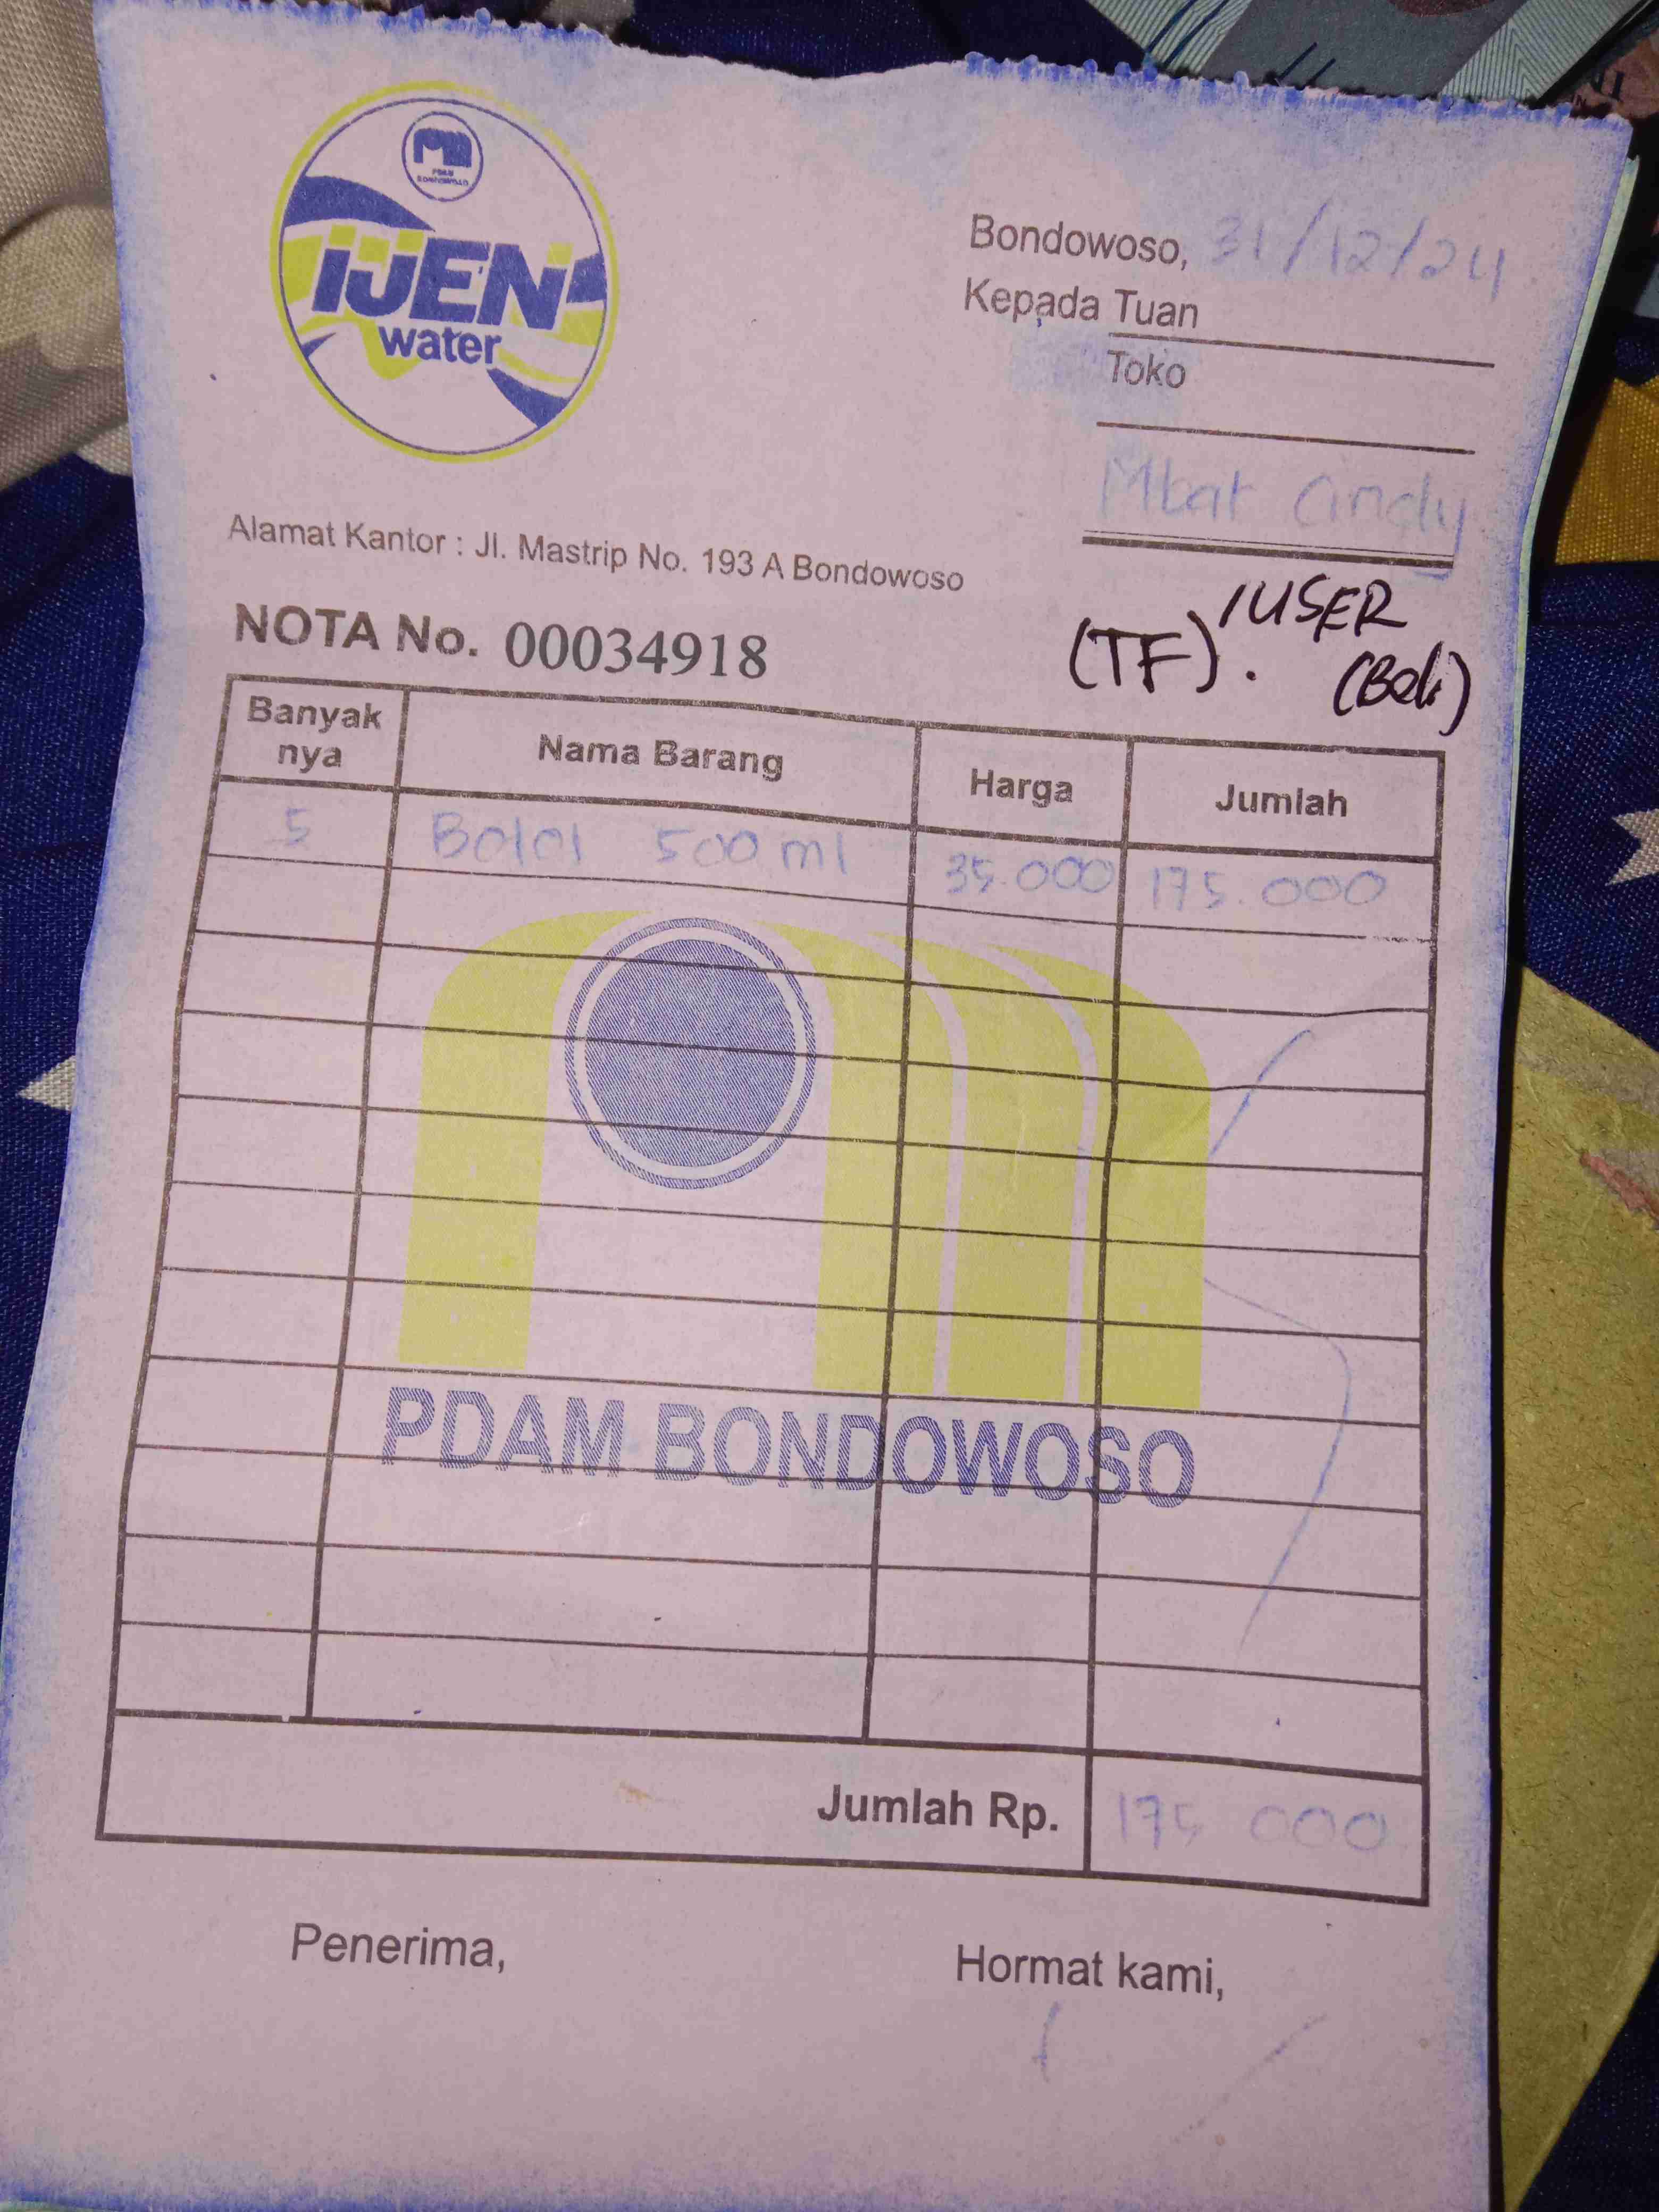 PDAM
BONDOWOSO
iJEN
water
Bondowoso, 31/12/24
Kepada Tuan
Toko
Mbak Cindy
Alamat Kantor : Jl. Mastrip No. 193 A Bondowoso
NOTA No. 00034918
(TF). /USER
(Beli)
Banyak nya Nama Barang Harga Jumlah
5 Botol 500 ml 35.000 175.000
PDAM BONDOWOSO
Jumlah Rp. 175 000
Penerima, Hormat kami,